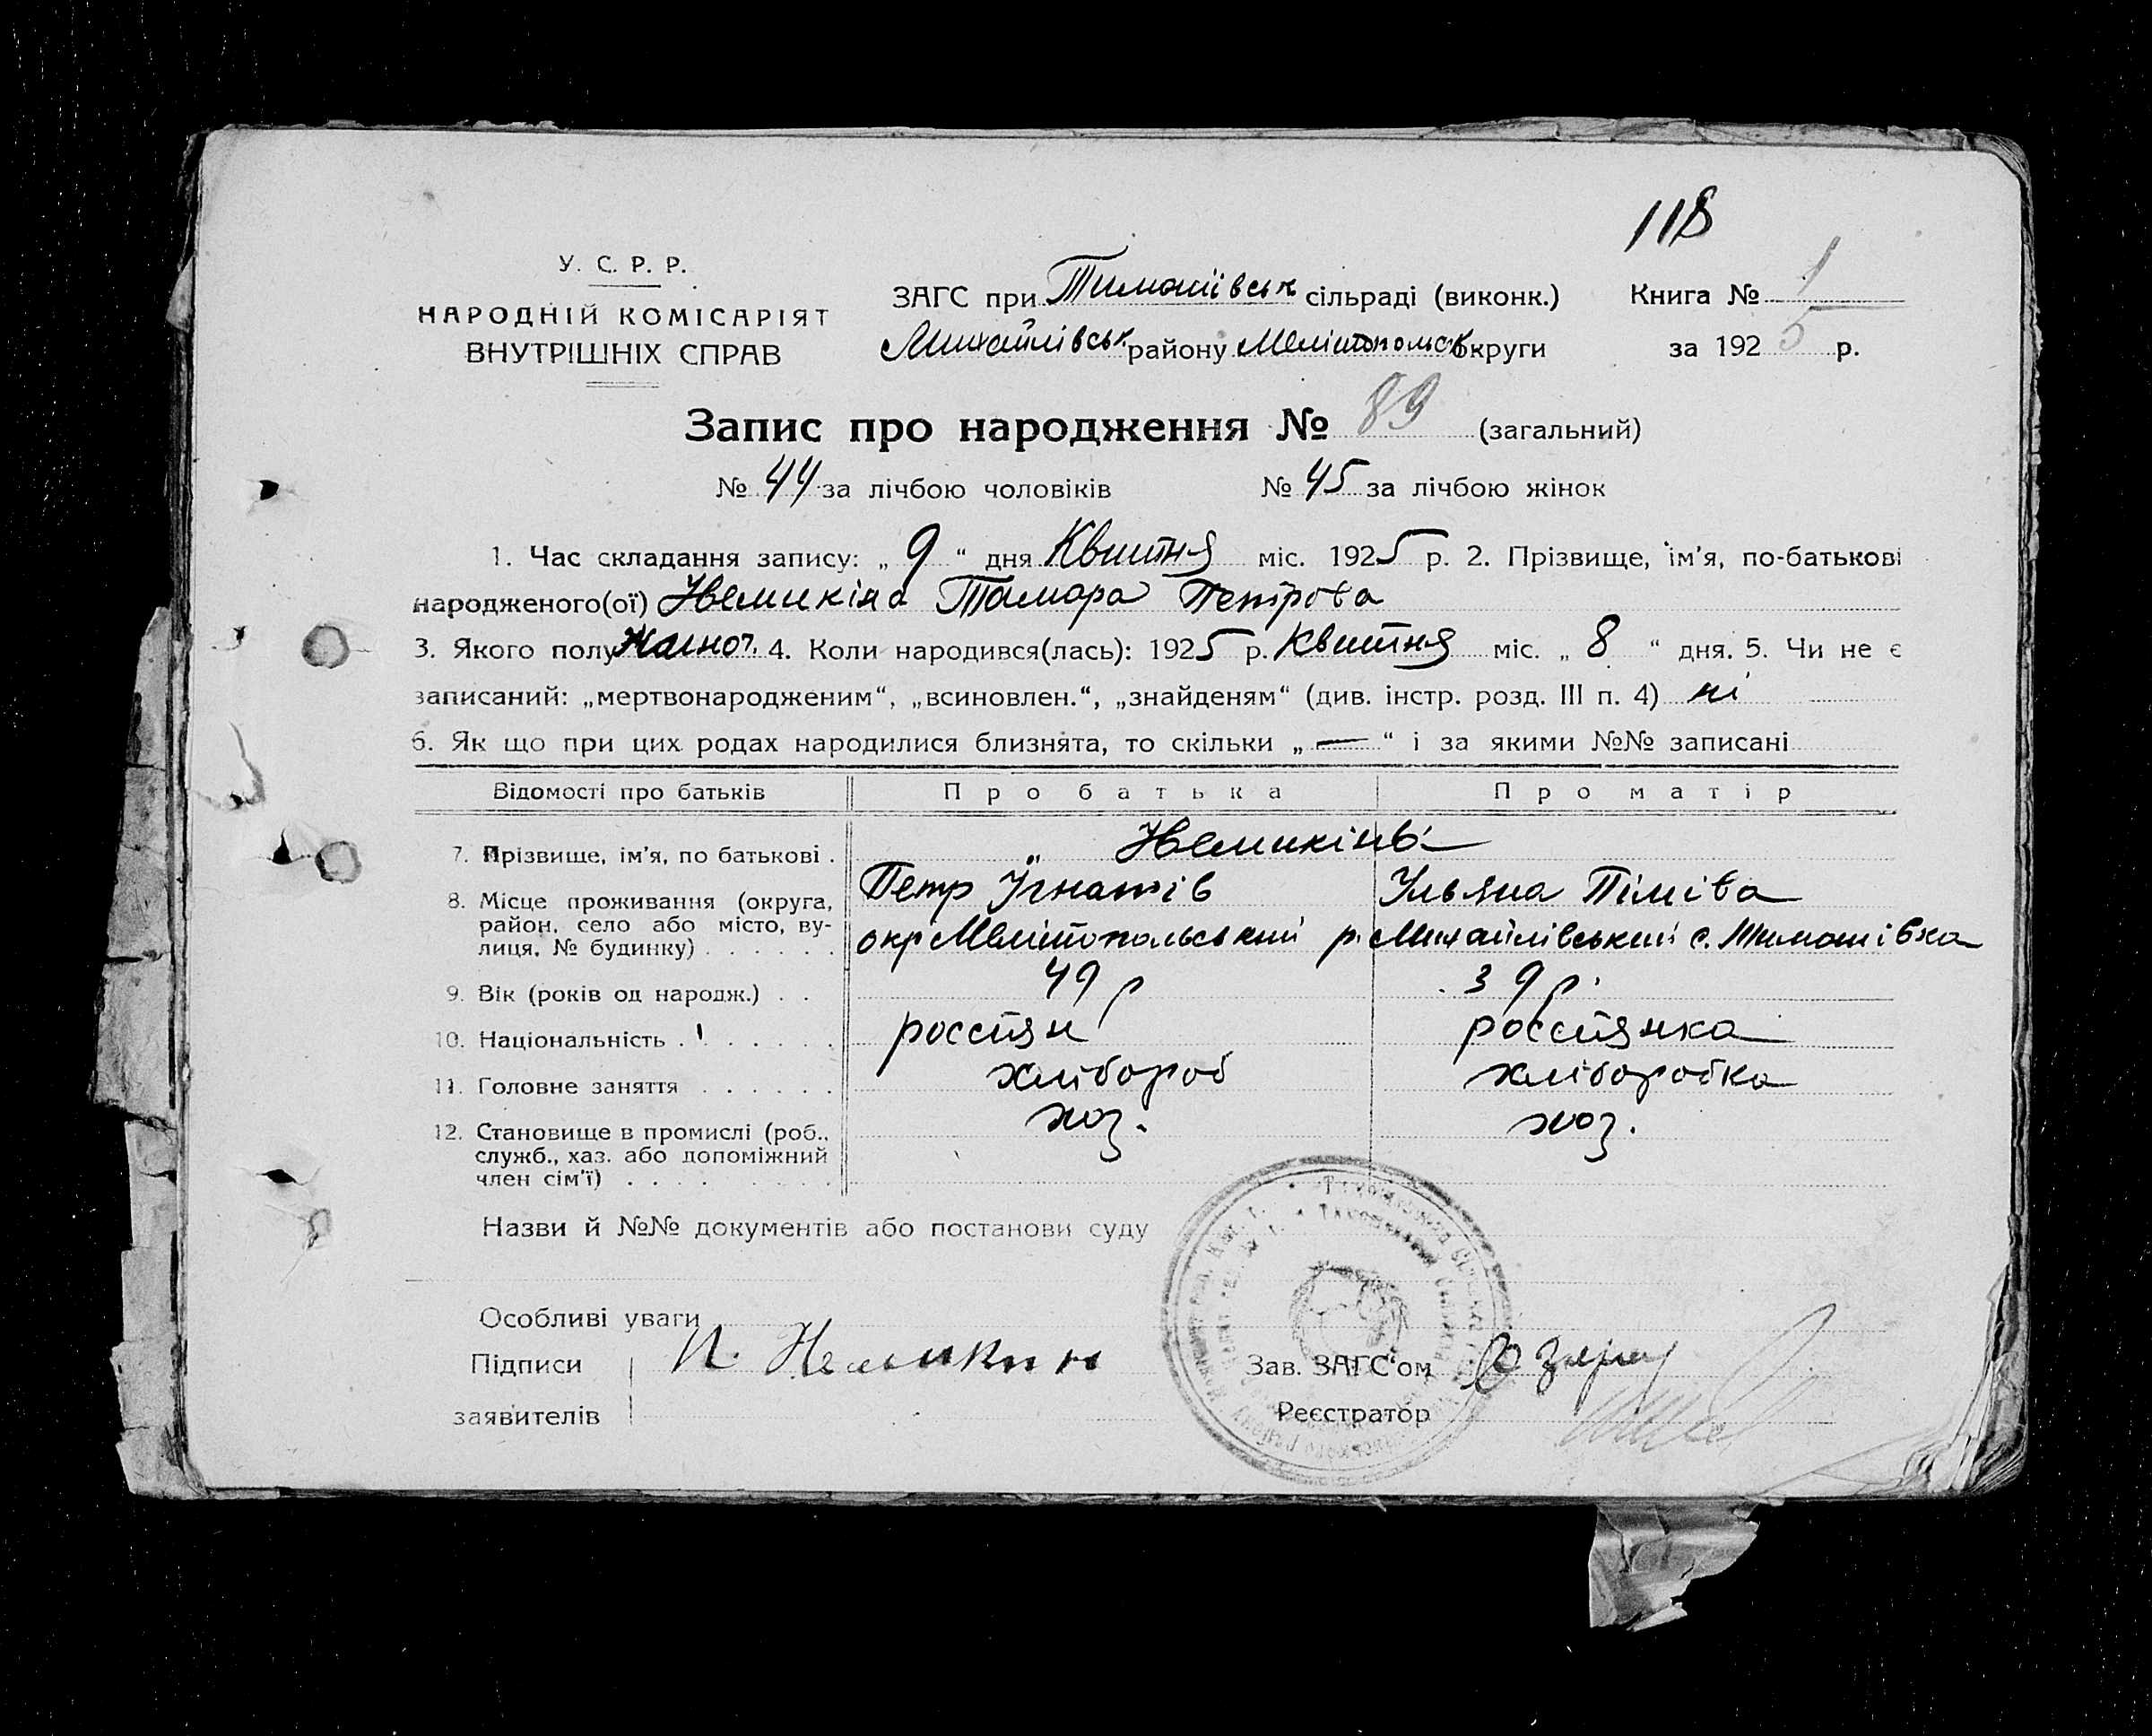 118
У. С. Р. Р.
НАРОДНІЙ КОМІСАРІЯТ
ВНУТРІШНІХ СПРАВ
ЗАГС при Тимошівськ сільраді (виконк.) Книга № 1
Михайлівськ району Мелітопольськ округи за 1925 р.
Запис про народження № 89 (загальний)
№ 44 за лічбою чоловіків № 45 за лічбою жінок
1. Час складання запису: „ 9 “ дня Квитня міс. 1925 р. 2. Прізвище, ім’я, по-батькові
народженого(ої) Немикіна Тамара Петрова
3. Якого полу жіноч. 4. Коли народився(лась): 1925 р. Квитня міс. „ 8 “ дня. 5. Чи не є
записаний: „мертвонародженим“, „всиновлен.“, „знайденям“ (див. інстр. розд. III п. 4) ні
6. Як що при цих родах народилися близнята, то скільки „ — “ і за якими №№ записані
Відомості про батьків Про батька Про матір
7. Прізвище, ім’я, по батькові . „ Немикінь
Петр Ігнатів Ульяна Піміва
8. Місце проживання (округа,
район, село або місто, ву-
лиця, № будинку) . . . . . . окр Мелітопольський р. Михайлівський с. Тимошівка
9. Вік (років од народж.) . . 49 р 39 р.
10. Національність . . . . . . россіян россіянка
11. Головне заняття . . . . . . хлібороб хліборобка
12. Становище в промислі (роб., хоз. хоз.
служб., хаз. або допоміжний
член сім’ї) . . . . . . . .
Назви й №№ документів або постанови суду
Особливі уваги
Підписи П. Немикин Зав. ЗАГС‘ом
заявителів Реєстратор